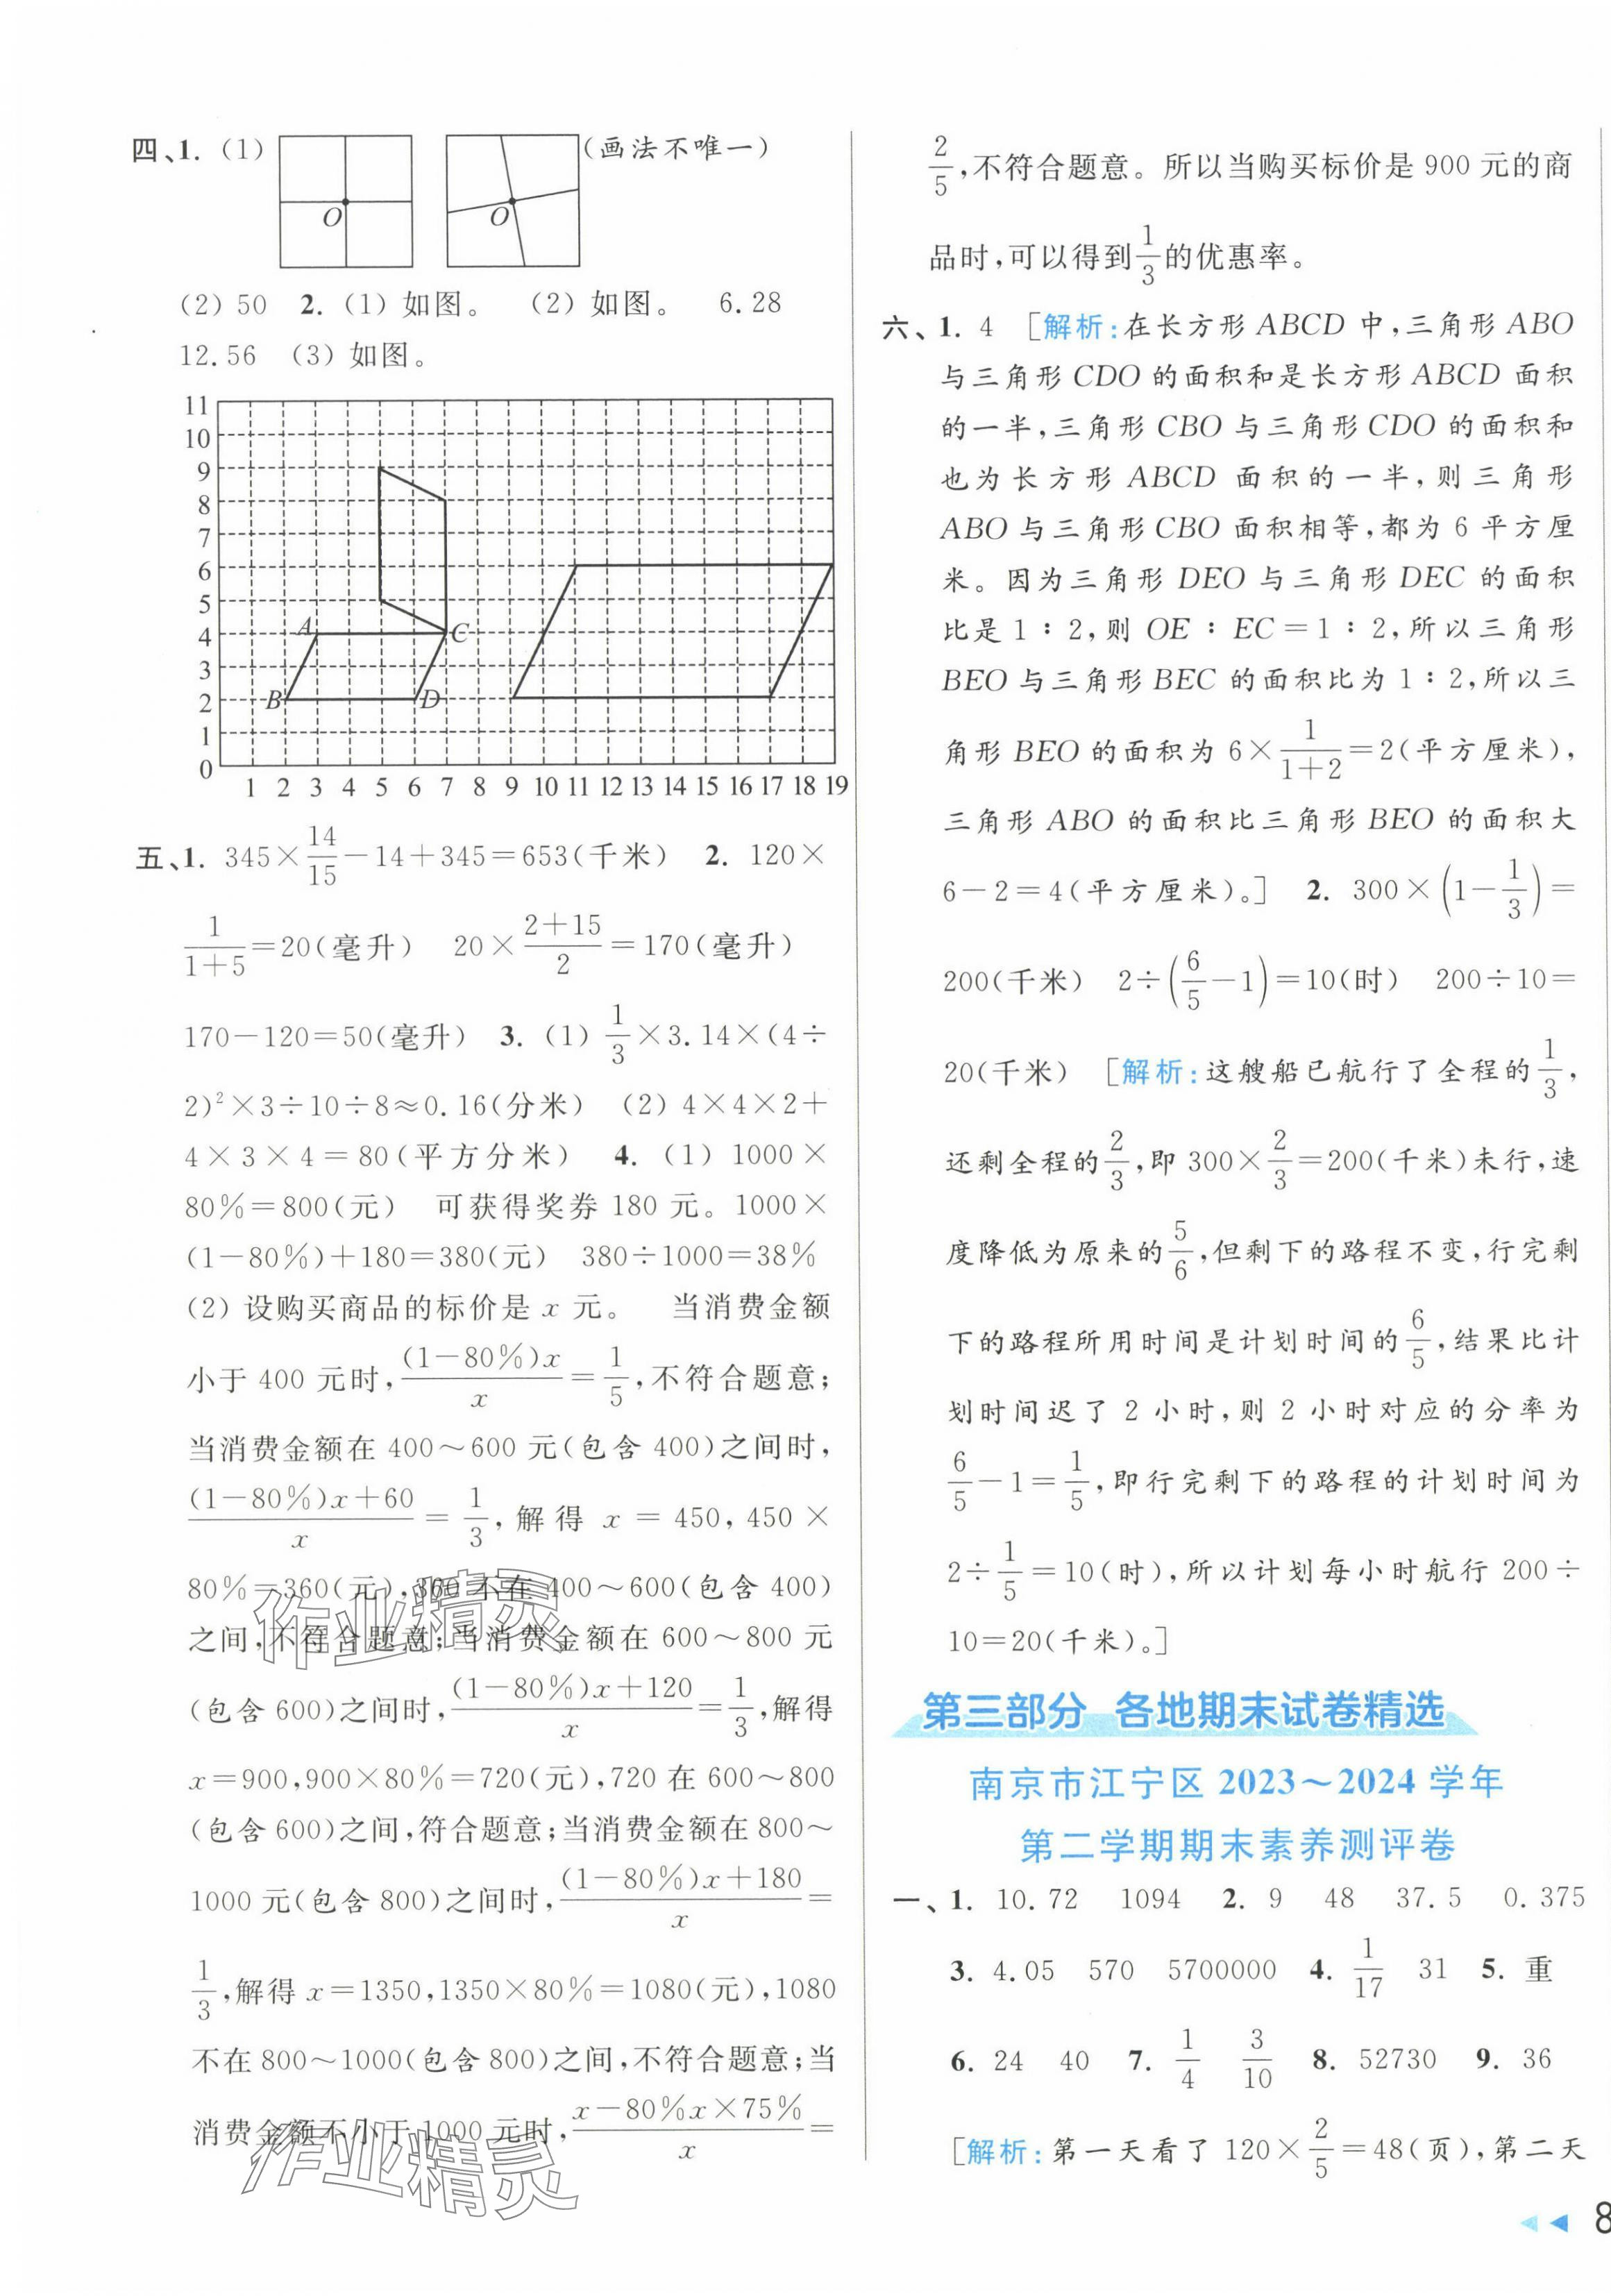 四、1. (1) (画法不唯一)
O
O
(2) 50 2. (1) 如图。 (2) 如图。 6.28
12.56 (3) 如图。
11
10
9
8
7
6
5
4
3
2
1
0
A
C
B
D
1 2 3 4 5 6 7 8 9 10 11 12 13 14 15 16 17 18 19
五、1. 345×14/15-14+345=653(千米) 2. 120×
1/(1+5)=20(毫升) 20×(2+15)/2=170(毫升)
170-120=50(毫升) 3. (1) 1/3×3.14×(4÷
2)²×3÷10÷8≈0.16(分米) (2) 4×4×2+
4×3×4=80(平方分米) 4. (1) 1000×
80%=800(元) 可获得奖券 180 元。1000×
(1-80%)+180=380(元) 380÷1000=38%
(2) 设购买商品的标价是 x 元。 当消费金额
小于 400 元时,(1-80%)x/x=1/5,不符合题意;
当消费金额在 400~600 元(包含 400)之间时,
((1-80%)x+60)/x=1/3,解得 x=450,450×
80%=360(元),360 不在 400~600(包含 400)
之间,不符合题意;当消费金额在 600~800 元
(包含 600)之间时,((1-80%)x+120)/x=1/3,解得
x=900,900×80%=720(元),720 在 600~800
(包含 600)之间,符合题意;当消费金额在 800~
1000 元(包含 800)之间时,((1-80%)x+180)/x=
1/3,解得 x=1350,1350×80%=1080(元),1080
不在 800~1000(包含 800)之间,不符合题意;当
消费金额不小于 1000 元时,(x-80%x×75%)/x=
作业精灵
作业精灵
2/5,不符合题意。所以当购买标价是 900 元的商
品时,可以得到1/3的优惠率。
六、1. 4 [解析:在长方形 ABCD 中,三角形 ABO
与三角形 CDO 的面积和是长方形 ABCD 面积
的一半,三角形 CBO 与三角形 CDO 的面积和
也为长方形 ABCD 面积的一半,则三角形
ABO 与三角形 CBO 面积相等,都为 6 平方厘
米。因为三角形 DEO 与三角形 DEC 的面积
比是 1∶2,则 OE∶EC=1∶2,所以三角形
BEO 与三角形 BEC 的面积比为 1∶2,所以三
角形 BEO 的面积为 6×1/(1+2)=2(平方厘米),
三角形 ABO 的面积比三角形 BEO 的面积大
6-2=4(平方厘米)。] 2. 300×(1-1/3)=
200(千米) 2÷(6/5-1)=10(时) 200÷10=
20(千米) [解析:这艘船已航行了全程的1/3,
还剩全程的2/3,即 300×2/3=200(千米)未行,速
度降低为原来的5/6,但剩下的路程不变,行完剩
下的路程所用时间是计划时间的6/5,结果比计
划时间迟了 2 小时,则 2 小时对应的分率为
6/5-1=1/5,即行完剩下的路程的计划时间为
2÷1/5=10(时),所以计划每小时航行 200÷
10=20(千米)。]
第三部分 各地期末试卷精选
南京市江宁区 2023~2024 学年
第二学期期末素养测评卷
一、1. 10.72 1094 2. 9 48 37.5 0.375
3. 4.05 570 5700000 4. 1/17 31 5. 重
6. 24 40 7. 1/4 3/10 8. 52730 9. 36
[解析:第一天看了 120×2/5=48(页),第二天
8